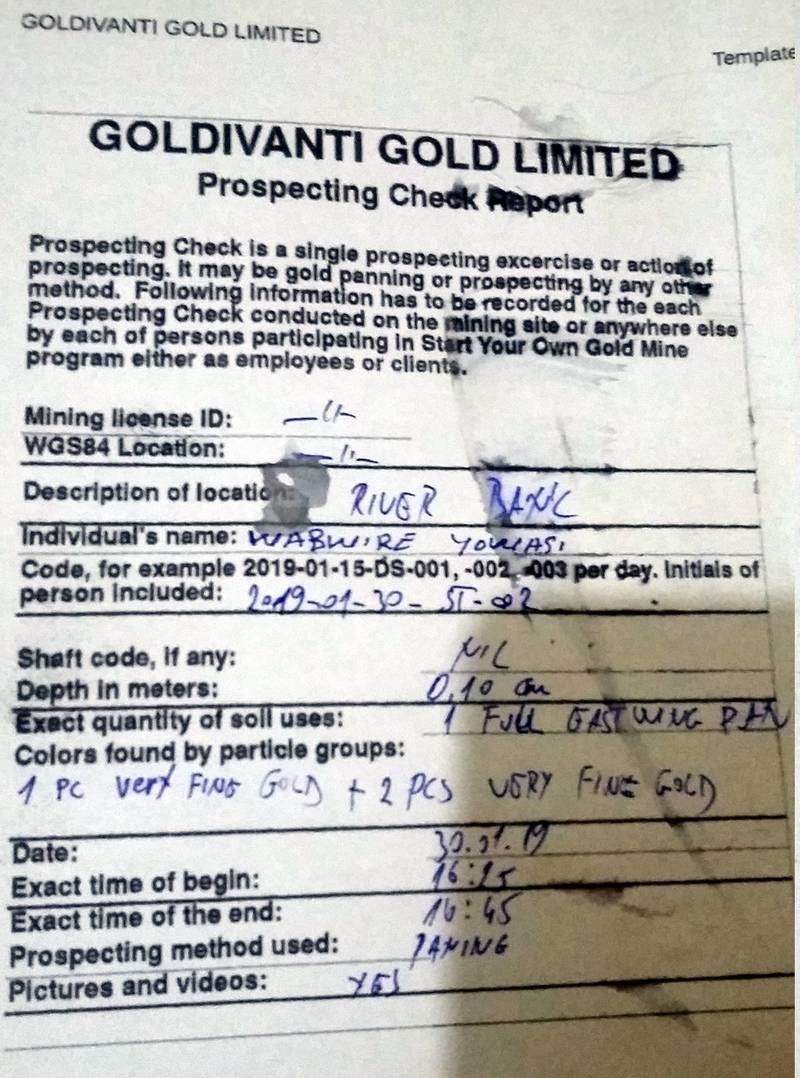 GOLDIVANTI GOLD LIMITED
Template
GOLDIVANTI GOLD LIMITED
Prospecting Check Report
Prospecting Check is a single prospecting excercise or action of
prospecting. It may be gold panning or prospecting by any other
method. Following information has to be recorded for the each
Prospecting Check conducted on the mining site or anywhere else
by each of persons participating in Start Your Own Gold Mine
program either as employees or clients.
Mining license ID: —11—
WGS84 Location: —11—
Description of location: RIVER BANK
Individual's name: WABWIRE
Code, for example 2019-01-15-DS-001, -002, -003 per day. Initials of
person included: 2019-01-30-
Shaft code, if any: NIL
Depth in meters: 0,10 cm
Exact quantity of soil uses: 1 FULL PAN
Colors found by particle groups:
1 PC very FINE GOLD + 2 PCS VERY FINE GOLD
Date: 30.01.19
Exact time of begin:
Exact time of the end: 16:45
Prospecting method used: PANING
Pictures and videos: YES